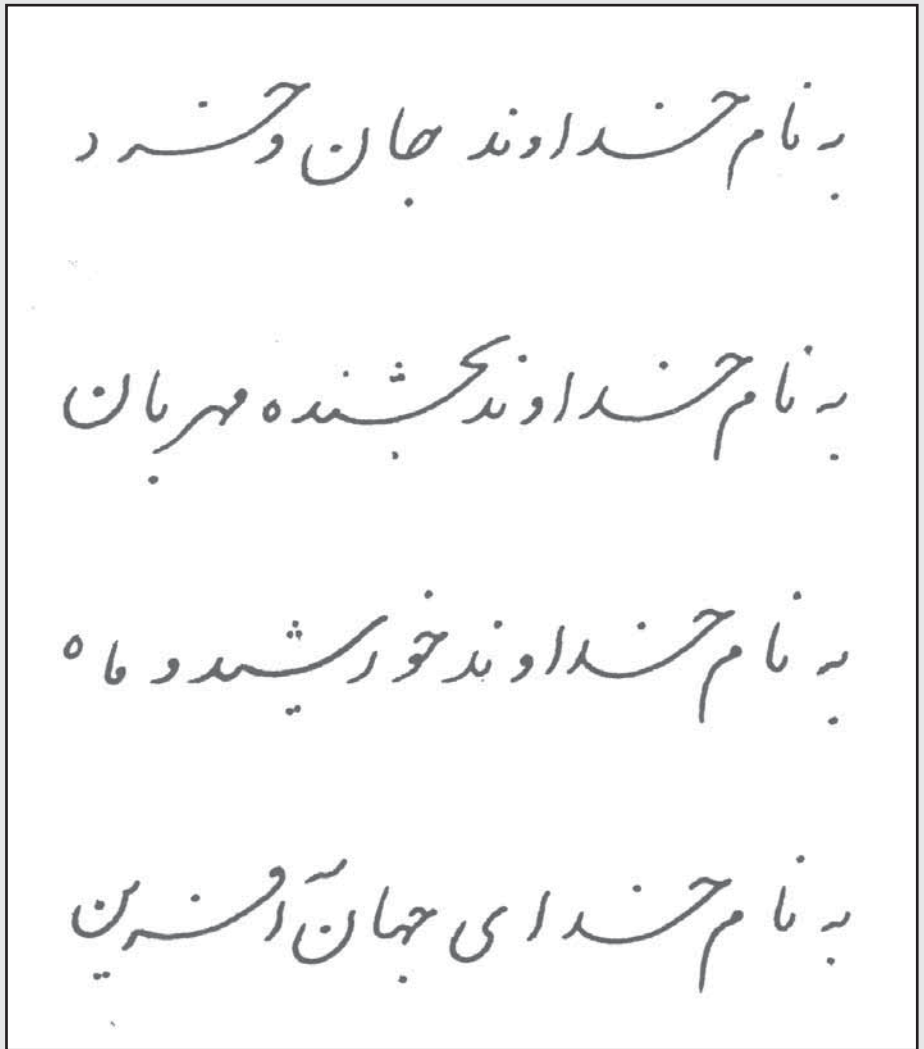 به نام خداوند جان و خرد
به نام خداوند بخشنده مهربان
به نام خداوند خورشید و ماه
به نام خدای جهان آفرین